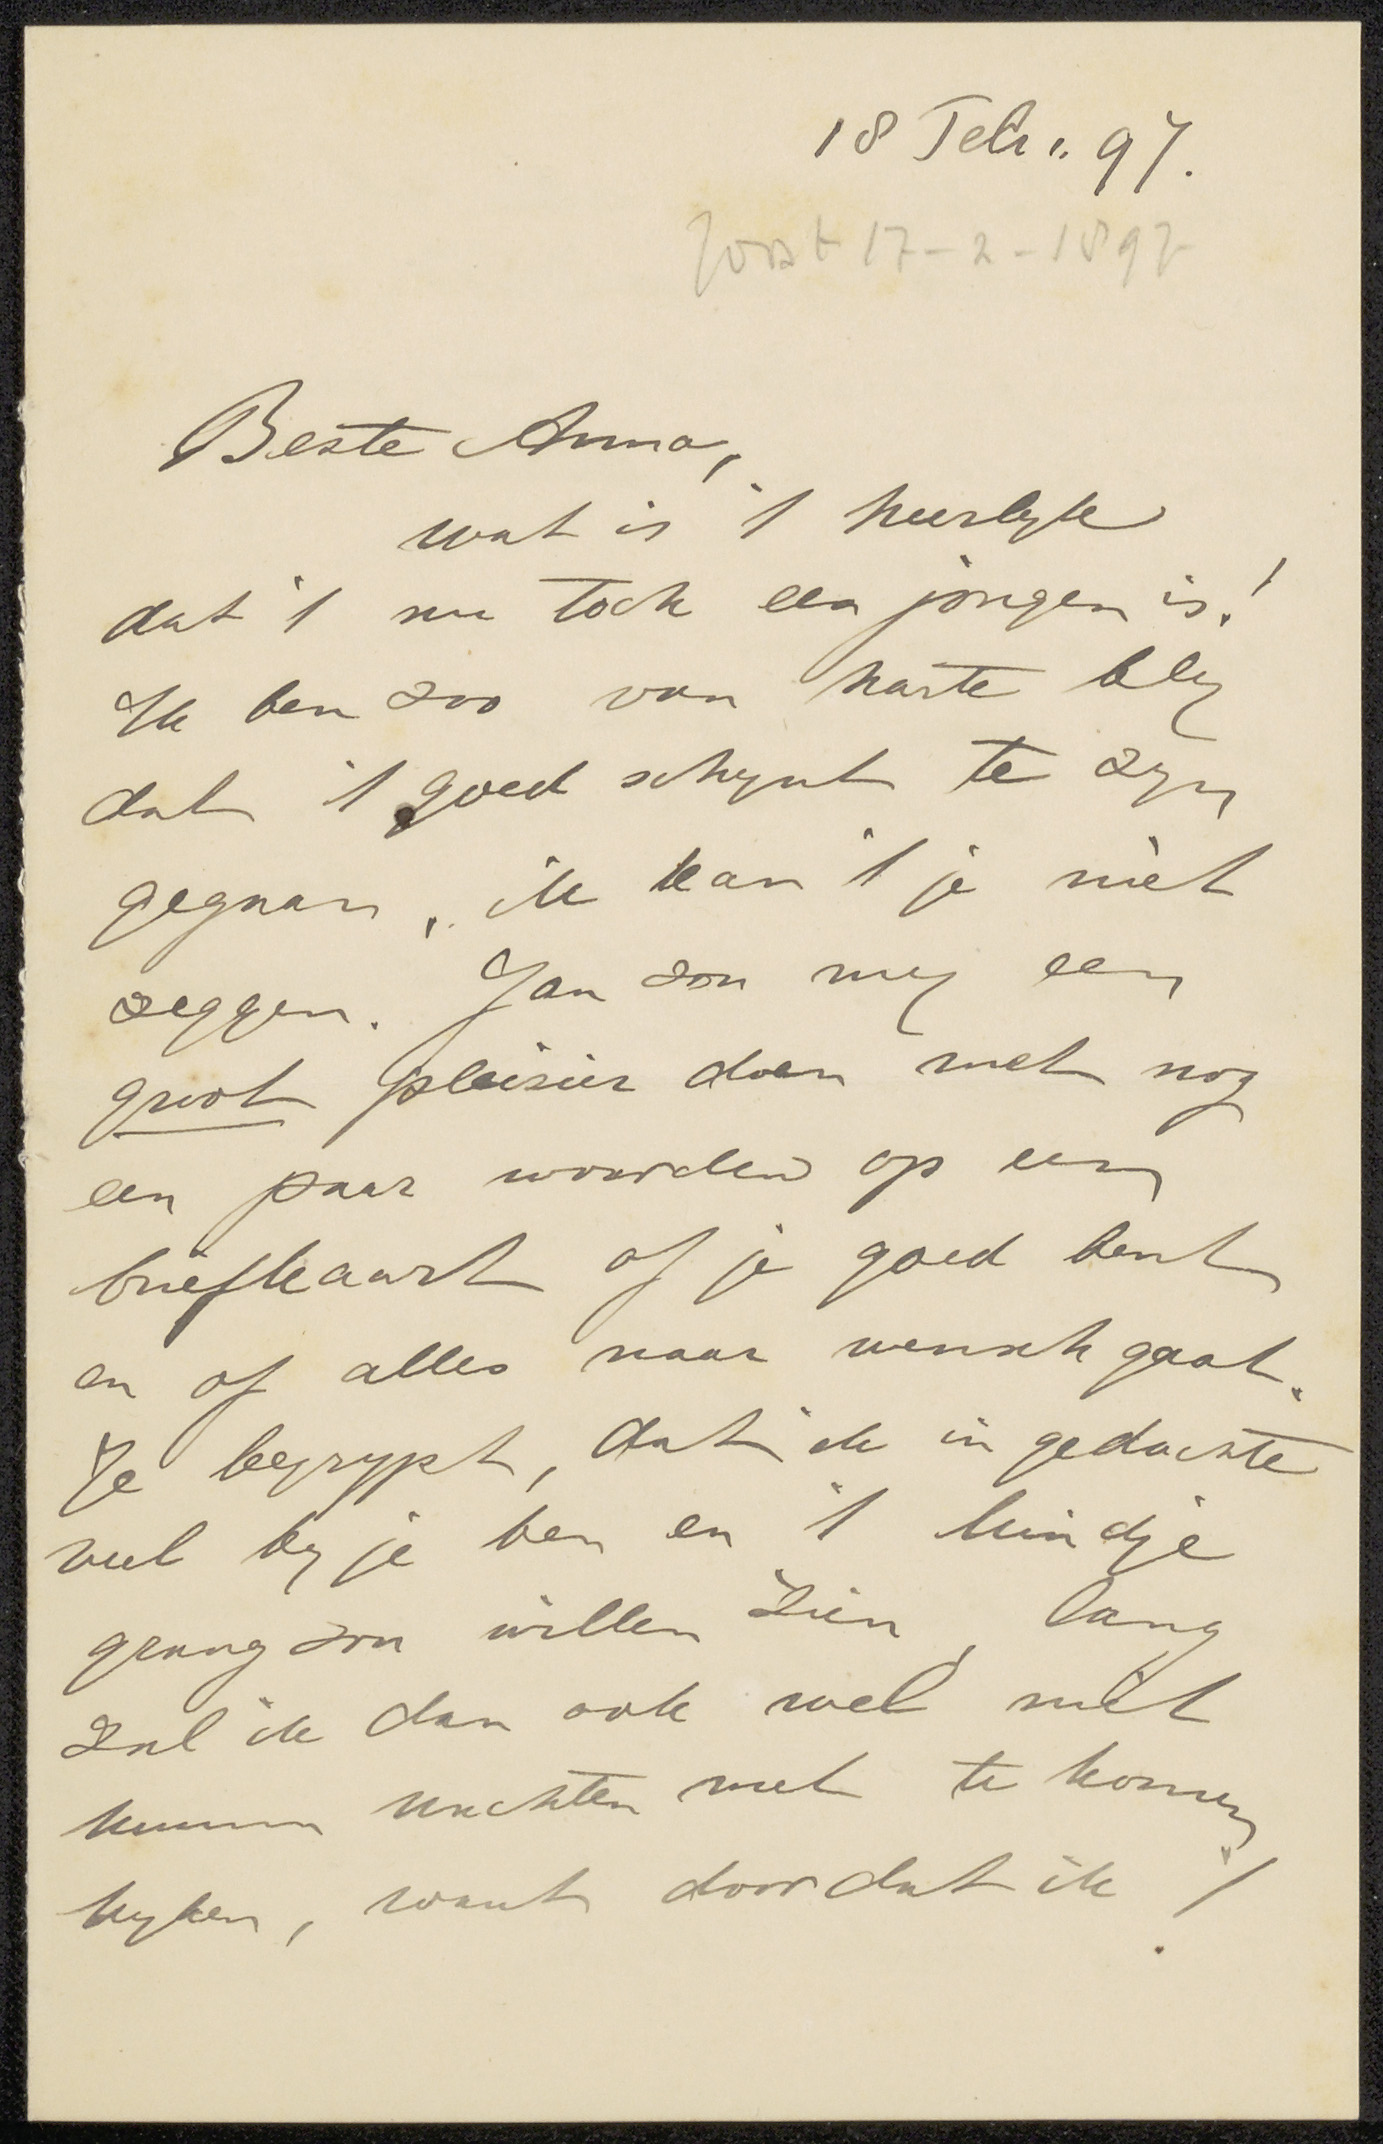 18 Febr. 97.
Joost 17-2-1897
Beste Anna,
wat is 't heerlyk
dat 't nu toch een jongen is!
Ik ben zoo van harte bly
dat 't goed schynt te zyn
gegaan, ik kan 't je niet
zeggen. Jan zou my een
groot pleisier doen met nog
een paar woorden op een
briefkaart of je goed bent
en of alles naar wensch gaat.
Je begrypt, dat ik in gedachte
veel by je ben en 't kindje
graag zou willen zien, lang
zal ik dan ook wel niet
kunnen wachten met te komen
kyken, want doordat ik 't